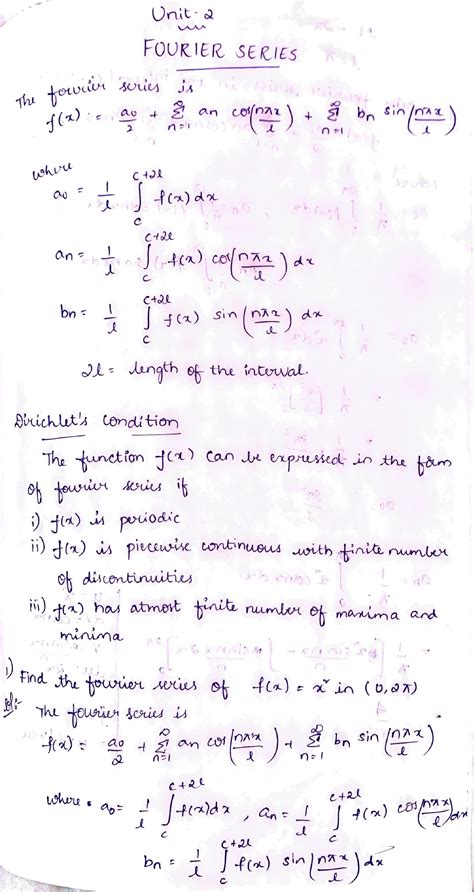 Unit-2
FOURIER SERIES
The fourier series is
f(x) = a0/2 + ∞Σn=1 an cos(nπx/l) + ∞Σn=1 bn sin(nπx/l)
where
a0 = 1/l ∫_c^{c+2l} f(x) dx
an = 1/l ∫_c^{c+2l} f(x) cos(nπx/l) dx
bn = 1/l ∫_c^{c+2l} f(x) sin(nπx/l) dx
2l = length of the interval.
Dirichlet's condition
The function f(x) can be expressed in the form
of fourier series if
i) f(x) is periodic
ii) f(x) is piecewise continuous with finite number
of discontinuities
iii) f(x) has atmost finite number of maxima and
minima
1) Find the fourier series of f(x) = x² in (0, 2π)
Sol:- The fourier series is
f(x) = a0/2 + ∞Σn=1 an cos(nπx/l) + ∞Σn=1 bn sin(nπx/l)
where a0 = 1/l ∫_c^{c+2l} f(x) dx, an = 1/l ∫_c^{c+2l} f(x) cos(nπx/l) dx
bn = 1/l ∫_c^{c+2l} f(x) sin(nπx/l) dx